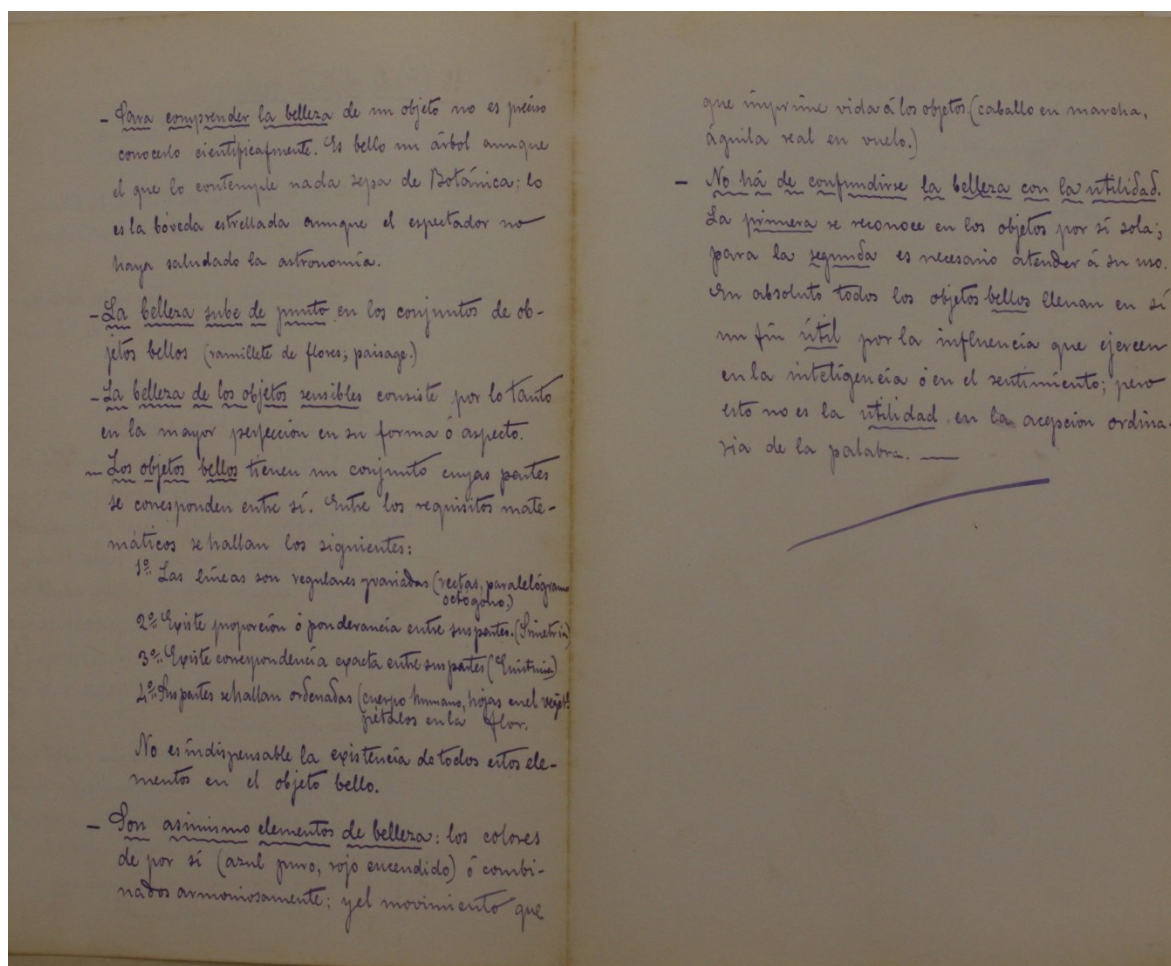 - Para comprender la belleza de un objeto no es preciso
conocerlo cientificamente. Es bello un árbol aunque
el que lo contemple nada sepa de Botánica; lo
es la bóveda estrellada aunque el espectador no
haya saludado la astronomía.
- La belleza sube de punto en los conjuntos de ob-
jetos bellos (ramillete de flores; paisage.)
- La belleza de los objetos sensibles consiste por lo tanto
en la mayor perfección en su forma ó aspecto.
- Los objetos bellos tienen un conjunto cuyas partes
se corresponden entre sí. Entre los requisitos mate-
máticos se hallan los siguientes:
1º. Las líneas son regulares y variadas (rectas, paralelógramo
octógono,)
2º. Existe proporción ó ponderancia entre sus partes. (Simetria)
3º. Existe correspondencia exacta entre sus partes (Euritmia)
4º. Sus partes se hallan ordenadas (cuerpo humano, hojas en el
pétalos en la flor.
No es indispensable la existencia de todos estos ele-
mentos en el objeto bello.
- Son asimismo elementos de belleza: los colores
de por sí (azul puro, rojo encendido) ó combi-
nados armoniosamente; y el movimiento que
que imprime vida á los objetos (caballo en marcha,
águila real en vuelo.)
- No há de confundirse la belleza con la utilidad.
La primera se reconoce en los objetos por sí sola;
para la segunda es necesario atender á su uso.
En absoluto todos los objetos bellos llenan en sí
un fin útil por la influencia que ejercen
en la inteligencia ó en el sentimiento; pero
esto no es la utilidad en la acepción ordina-
ria de la palabra. —